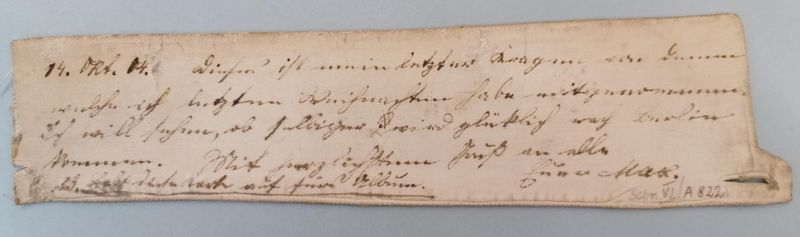 14. Okt. 04. Dieses ist mein letzter Kragen von denen
welche ich letzten Weihnachten habe mitgenommen.
Ich will sehen, ob selbiger wird glücklich nach Berlin
kommen. Mit herzlichstem Gruß an alle
Euer Max.
hebt diese Karte auf fürs Album.
Schr. VI/A 822